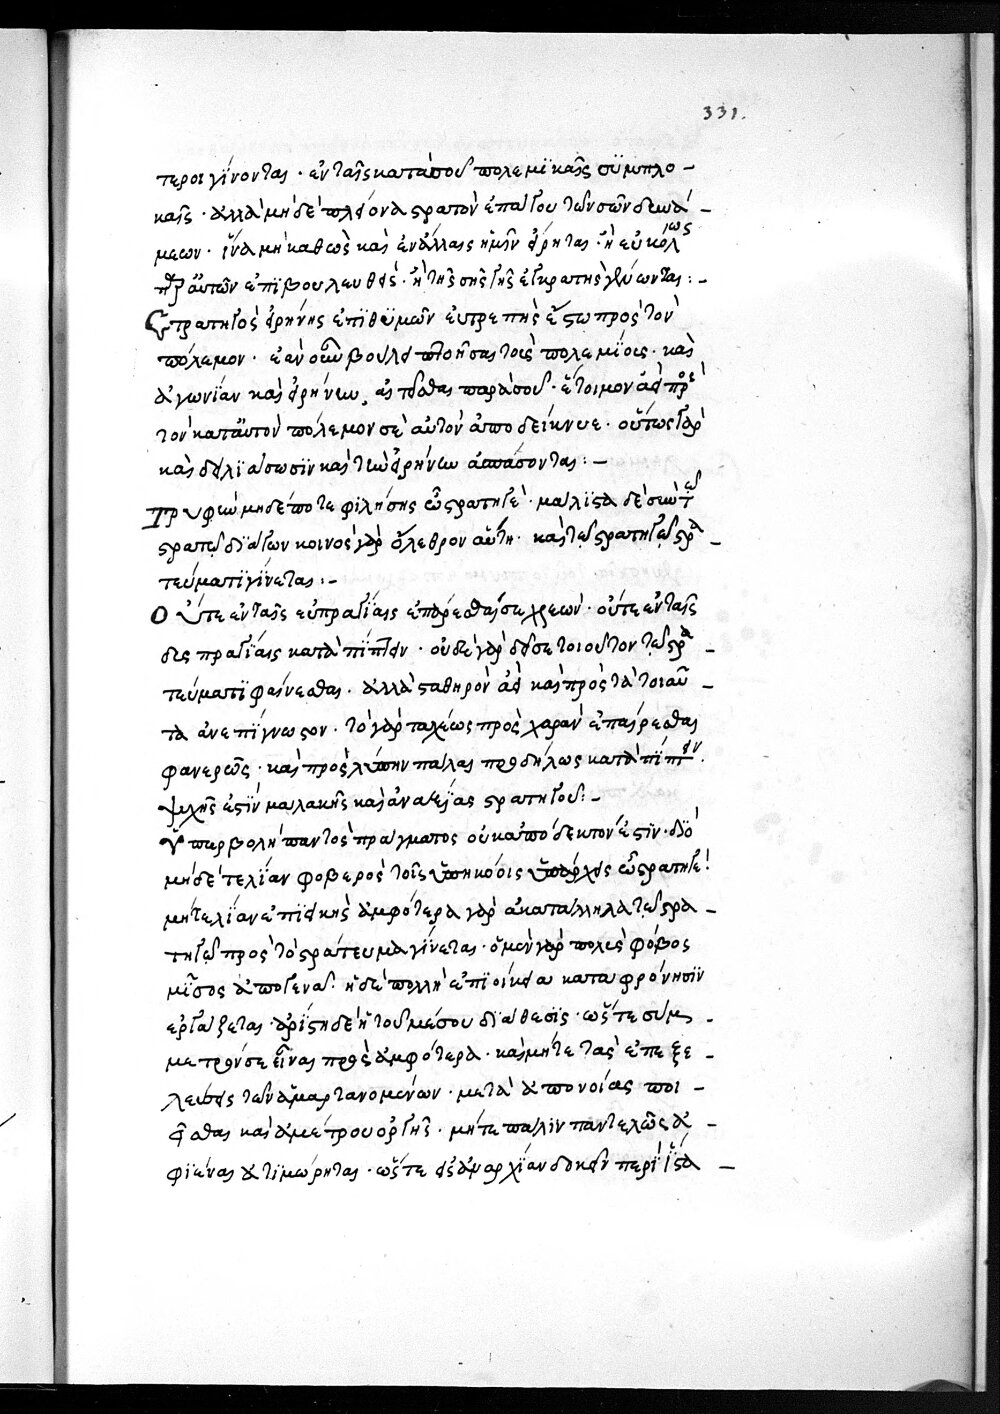 331.
τεροι γίνονται · ἐν ταῖς κατὰ σοῦ πολεμϊκαῖς συμπλο –
καῖς · ἀλλὰ μὴ δὲ πλείονα στρατὸν ἐπάγου τῶν σῶν δυνά –
μεων · ἵνα μὴ καθὼς καὶ ἐν ἄλλοις ἡμῖν εἴρηται · ἢ εὐκόλως
παρ αὐτῶν ἐπϊβουλευθεὶς · ἢ τῆς σῆς γῆς ἐγκρατεῖς γένωνται : –
Στρατηγὸς εἰρήνης ἐπϊθυμῶν εὐτρεπὴς ἔστω πρὸς τὸν
πόλεμον · ἐὰν οὖν βούλει πτοῆσαι τοὺς πολεμΐους · καὶ
ἀγωνϊᾶν καὶ εἰρήνην αἰτεῖσθαι παρὰ σοῦ · ἕτοιμον ἀεὶ πρὸς
τὸν κατ αὐτὸν πόλεμον σεαυτὸν ἀποδείκνυε · οὕτως γὰρ
καὶ δειλϊάσωσϊν καὶ τὴν εἰρήνην ἀσπάσονται : –
Τρυφὴν μηδέποτε φϊλήσῃς ὦ στρατηγέ · μάλϊστα δὲ σὺν τοῦ
στρατοῦ δϊάγων κοινὸς γὰρ ὄλεθρον αὕτη · καὶ τοῦ στρατηγοῦ στρα –
τεύματϊ γϊνεται : –
Οὔτε ἐν ταῖς εὐπραγΐαις ἐπαίρεσθαί σε χρεών · οὔτε ἐν ταῖς
δυσπραγΐαις καταπΐπτειν · οὐδὲ γὰρ δεῖ σε τοιοῦτον τοῦ στρα –
τεύματϊ φαίνεσθαι · ἀλλὰ σταθηρὸν ἀεὶ καὶ πρὸς τὰ τοιαῦ –
τα ἀνεπΐγνωστον · τὸ γὰρ ταχέως πρὸς χαρὰν ἐπαίρεσθαι
φανερῶς · καὶ πρὸς λύπην πάλαι προδήλως καταπΐπτειν ·
ψυχῆς ἐστϊν μαλακῆς καὶ ἀναξΐας στρατηγοῦ : –
Ὑπερβολὴ παντὸς πράγματος οὐκ ἀπόδεκτον ἐστϊν · δϊὸ
μὴ δὲ τε λΐαν φοβερὸς τοῖς ὑπηκόοις ὑπάρχῃς ὦ στρατηγέ ·
μή τε λΐαν ἐπϊεικὴς ἀμφότερα γὰρ ἀκατάλληλα τοῦ στρα –
τηγοῦ πρὸς τὸ στράτευμα γίνεται · ὁ μὲν γὰρ πολὺς φόβος
μῖσος ἀπογεννᾶ · ἡ δὲ πολλὴ ἐπϊοίκεια καταφρόνησϊν
ἐργάζεται · ἀρίστη δὲ ἡ τοῦ μέσου δϊάθεσϊς · ὥστε σύμ –
μετρόν σε εἶναι πρὸς ἀμφότερα · καὶ μήτε τὰς ἐπεξε –
λεύσεις τῶν ἁμαρτανομένων · μετὰ ἀπονοίας ποι –
εῖσθαι καὶ ἀμέτρου ὀργῆς · μήτε πάλϊν παντελῶς ἀ –
φϊέναι ἀτϊμώρηται · ὥστε εἰς ἀναρχΐαν δοκεῖν περϊΐστα –